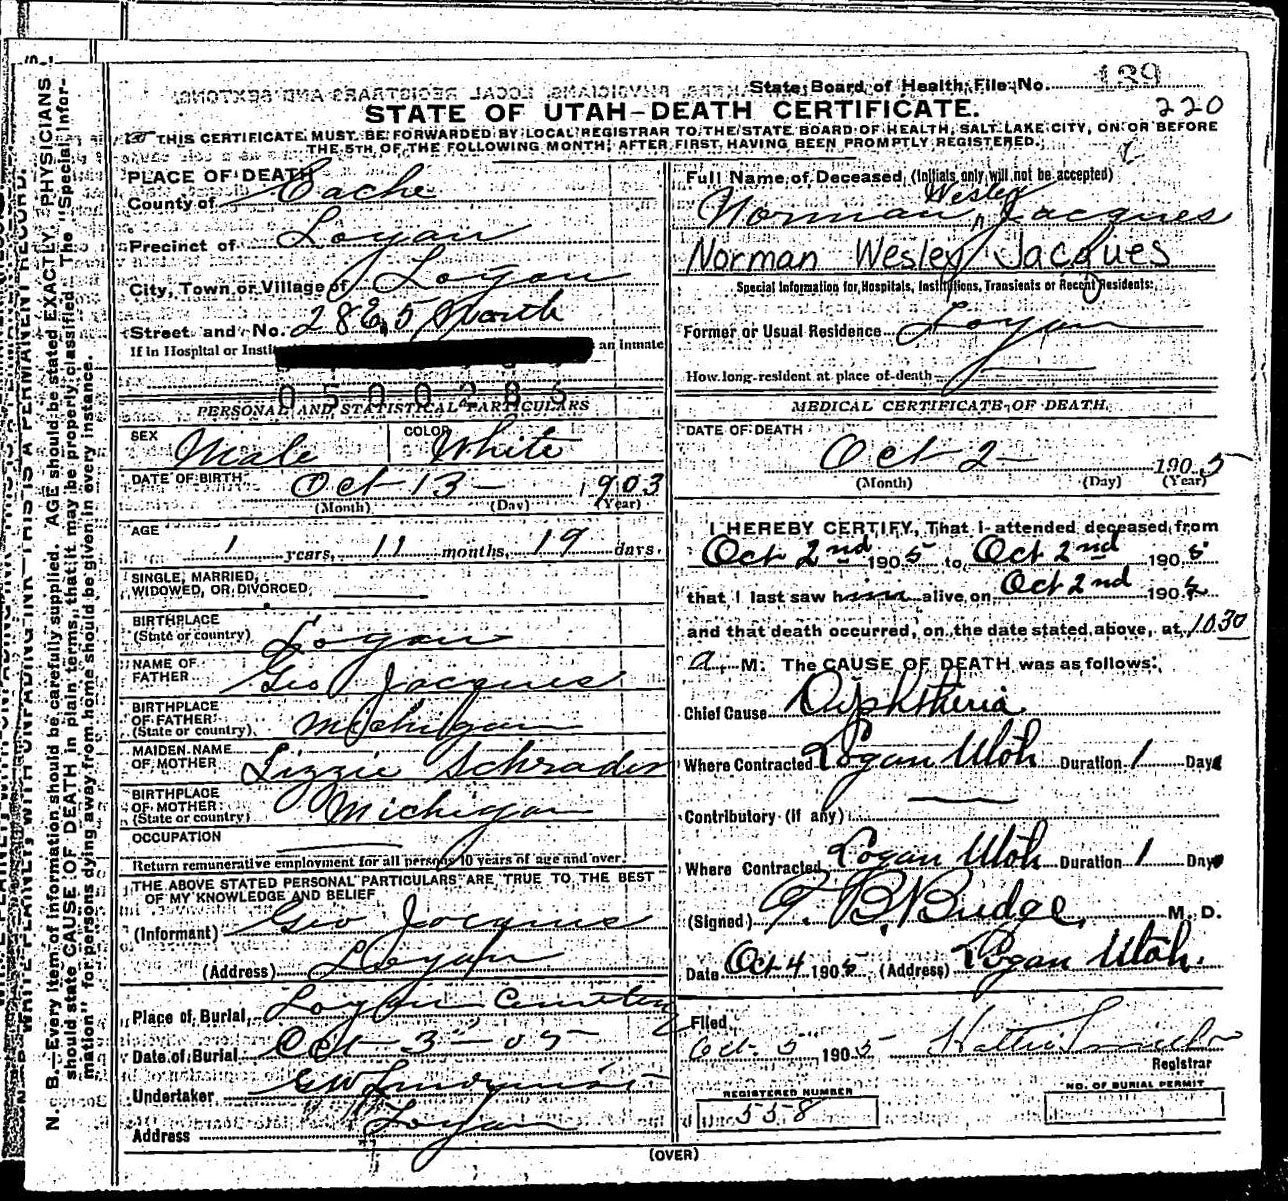 State Board of Health File No. 139
STATE OF UTAH—DEATH CERTIFICATE.
220
THIS CERTIFICATE MUST BE FORWARDED BY LOCAL REGISTRAR TO THE STATE BOARD OF HEALTH, SALT LAKE CITY, ON OR BEFORE
THE 5TH OF THE FOLLOWING MONTH, AFTER FIRST HAVING BEEN PROMPTLY REGISTERED.
N. B.—Every item of information should be carefully supplied. AGE should be stated EXACTLY. PHYSICIANS
should state CAUSE OF DEATH in plain terms, that it may be properly classified. The "Special Infor-
mation" for persons dying away from home should be given in every instance.
PLACE OF DEATH
County of Cache
Precinct of Logan
City, Town or Village of Logan
Street and No. 28 E. 5 North
If in Hospital or Insti an inmate
0500285
PERSONAL AND STATISTICAL PARTICULARS
SEX Male COLOR White
DATE OF BIRTH Oct 13 — 1903
(Month) (Day) (Year)
AGE 1 years, 11 months, 19 days.
SINGLE, MARRIED,
WIDOWED, OR DIVORCED
BIRTHPLACE
(State or country) Logan
NAME OF
FATHER Geo Jacques
BIRTHPLACE
OF FATHER
(State or country) Michigan
MAIDEN NAME
OF MOTHER Lizzie Schrader
BIRTHPLACE
OF MOTHER
(State or country) Michigan
OCCUPATION
Return remunerative employment for all persons 10 years of age and over.
THE ABOVE STATED PERSONAL PARTICULARS ARE TRUE TO THE BEST
OF MY KNOWLEDGE AND BELIEF
(Informant) Geo Jacques
(Address) Logan
Place of Burial, Logan Cemetery
Date of Burial Oct 3rd 05
Undertaker
Address Logan
Full Name of Deceased, (Initials only will not be accepted)
Norman Wesley Jacques
Norman Wesley Jacques
Special Information for Hospitals, Institutions, Transients or Recent Residents:
Former or Usual Residence Logan
How long resident at place of death
MEDICAL CERTIFICATE OF DEATH
DATE OF DEATH
Oct 2 — 1905
(Month) (Day) (Year)
I HEREBY CERTIFY, That I attended deceased from
Oct 2nd 1905 to Oct 2nd 1905
that I last saw him alive on Oct 2nd 1905
and that death occurred, on the date stated above, at 10.30
a. M. The CAUSE OF DEATH was as follows:
Chief Cause Diphtheria
Where Contracted Logan Utah Duration 1 Days
Contributory (if any)
Where Contracted Logan Utah Duration 1 Days
(Signed) B. Budge, M. D.
Date Oct 4 1905 (Address) Logan Utah.
Filed
Oct. 5 1905
Registrar
REGISTERED NUMBER
558
NO. OF BURIAL PERMIT
(OVER)